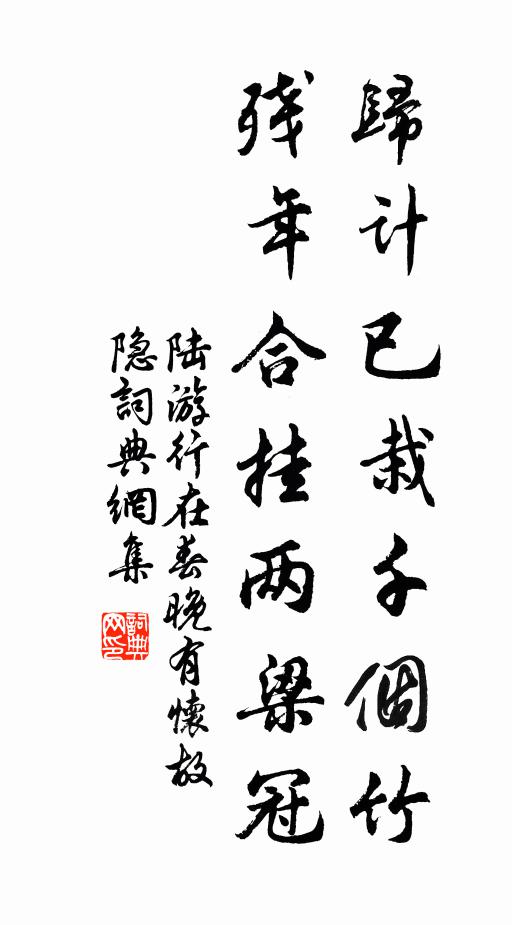 歸计已栽千個竹
残年合挂两梁冠
陆游行在春晚有懷故
隐詞典網集
詞典网印